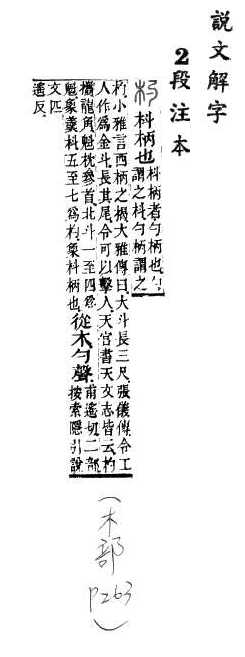 說文解字
2段注本
杓 枓柄也
枓柄者勺柄也勺
謂之枓勺柄謂之
杓小雅言西柄之揭大雅傳曰大斗長三尺張儀傳令工
人作爲金斗長其尾令可以擊人天官書天文志皆云杓
攜龍角魁枕參首北斗一至四爲
魁象羹枓五至七爲杓象枓柄也
從木勺聲
甫遙切二部
按索隱引說
文匹
遙反
(木部 P263)